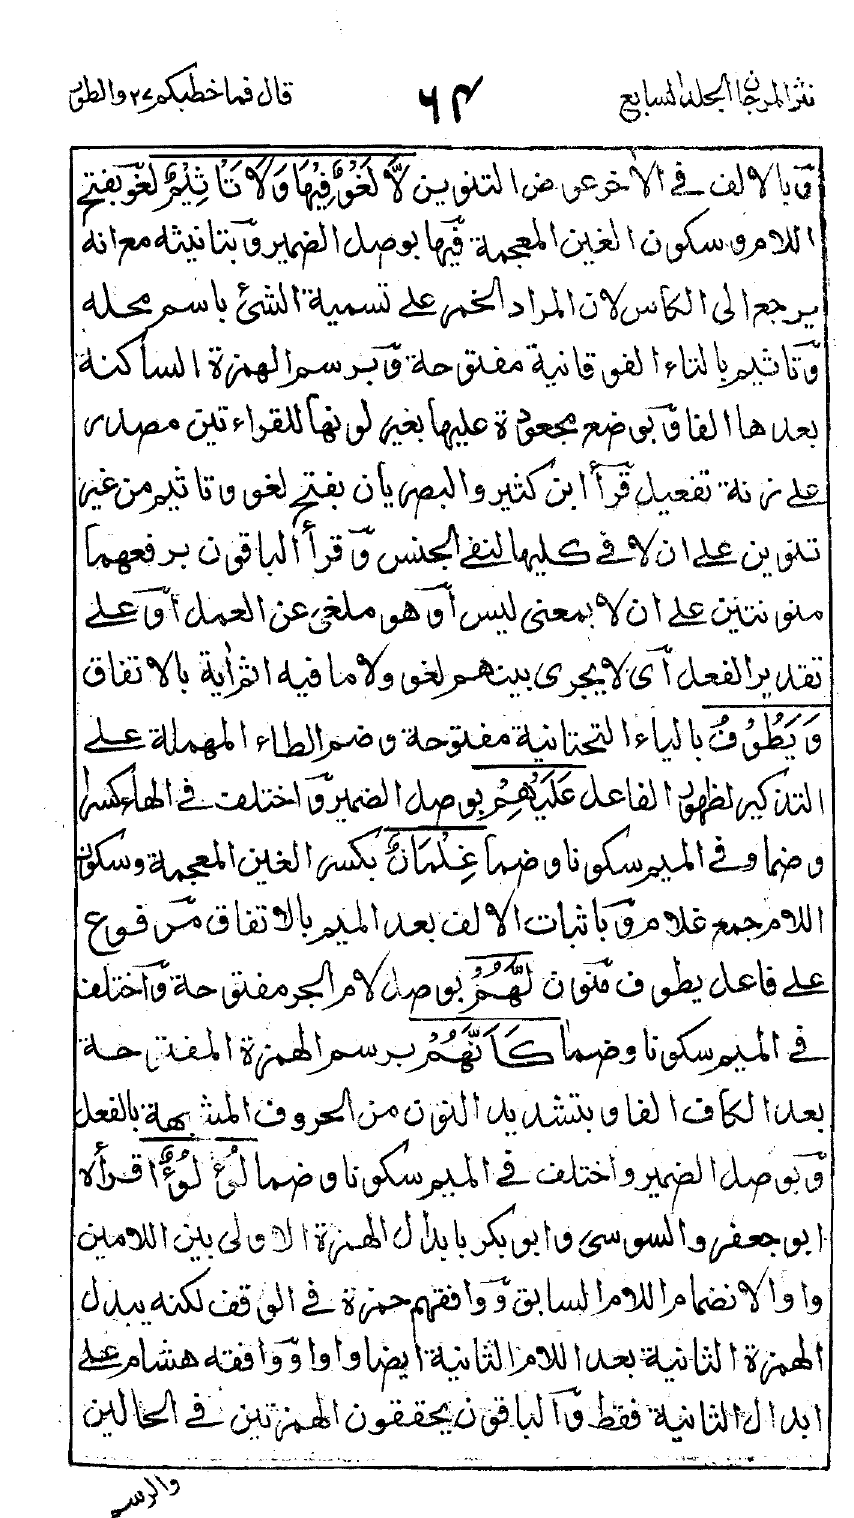 نثر المرجان الجلد السابع ٦٤ قال فما خطبكم ٢٧ والطور
وّبالالف فى الاخر عوض التنوين لَّا لَغْوٌ فِيْهَا وَلَا تَاْثِيْمٌ لغو بفتح
اللام وسكون الغين المعجمة فيّها بوصل الضمير وّبتانيثه مع انه
يرجع الى الكاس لان المراد الخمر على تسمية الشئ باسم محله
وّتاثيم بالتاء الفوقانية مفتوحة وّبرسم الهمزة الساكنة
بعدها الفا وّبوضع مجعودة عليها بغير لونها للقراءتين مصدر
على زنة تفعيل قرّأ ابن كثير والبصريان بفتح لغو وتاثيم من غير
تنوين على ان لا فى كليهما لنفى الجنس وّقرأ الباقون برفعهما
منونتين على ان لا بمعنى ليس اوّ هو ملغى عن العمل اوّ على
تقدير الفعل اىّ لا يجرى بينهم لغو ولا ما فيه اثم اية بالاتفاق
وَيَطُوْفُ بالياء التحتانية مفتوحة وضم الطاء المهملة على
التذكير لظهور الفاعل عَلَيْهِمْ بوصل الضمير وّاختلف فى الهاء كسرا
وضما وفى الميم سكونا وضما غِلْمَانٌ بكسر الغين المعجمة وسكون
اللام جمع غلام وّباثبات الالف بعد الميم بالاتفاق مرّفوع
على فاعل يطوف منّون لَّهُمْ بوصل لام الجر مفتوحة وّاختلف
فى الميم سكونا وضما كَاَنَّهُمْ برسم الهمزة المفتوحة
بعد الكاف الفا وبتشديد النون من الحروف المشبهة بالفعل
وّبوصل الضمير واختلف فى الميم سكونا وضما لُؤْلُؤٌا قرأه
ابو جعفر والسوسى وابو بكر بابدال الهمزة الاولى بين اللامين
واوا لانضمام اللام السابق وّوافقهم حمزة فى الوقف لكنه يبدل
الهمزة الثانية بعد اللام الثانية ايضا واوا وّوافقه هشام على
ابدال الثانية فقط وّالباقون يحققون الهمزتين فى الحالين
والرسم